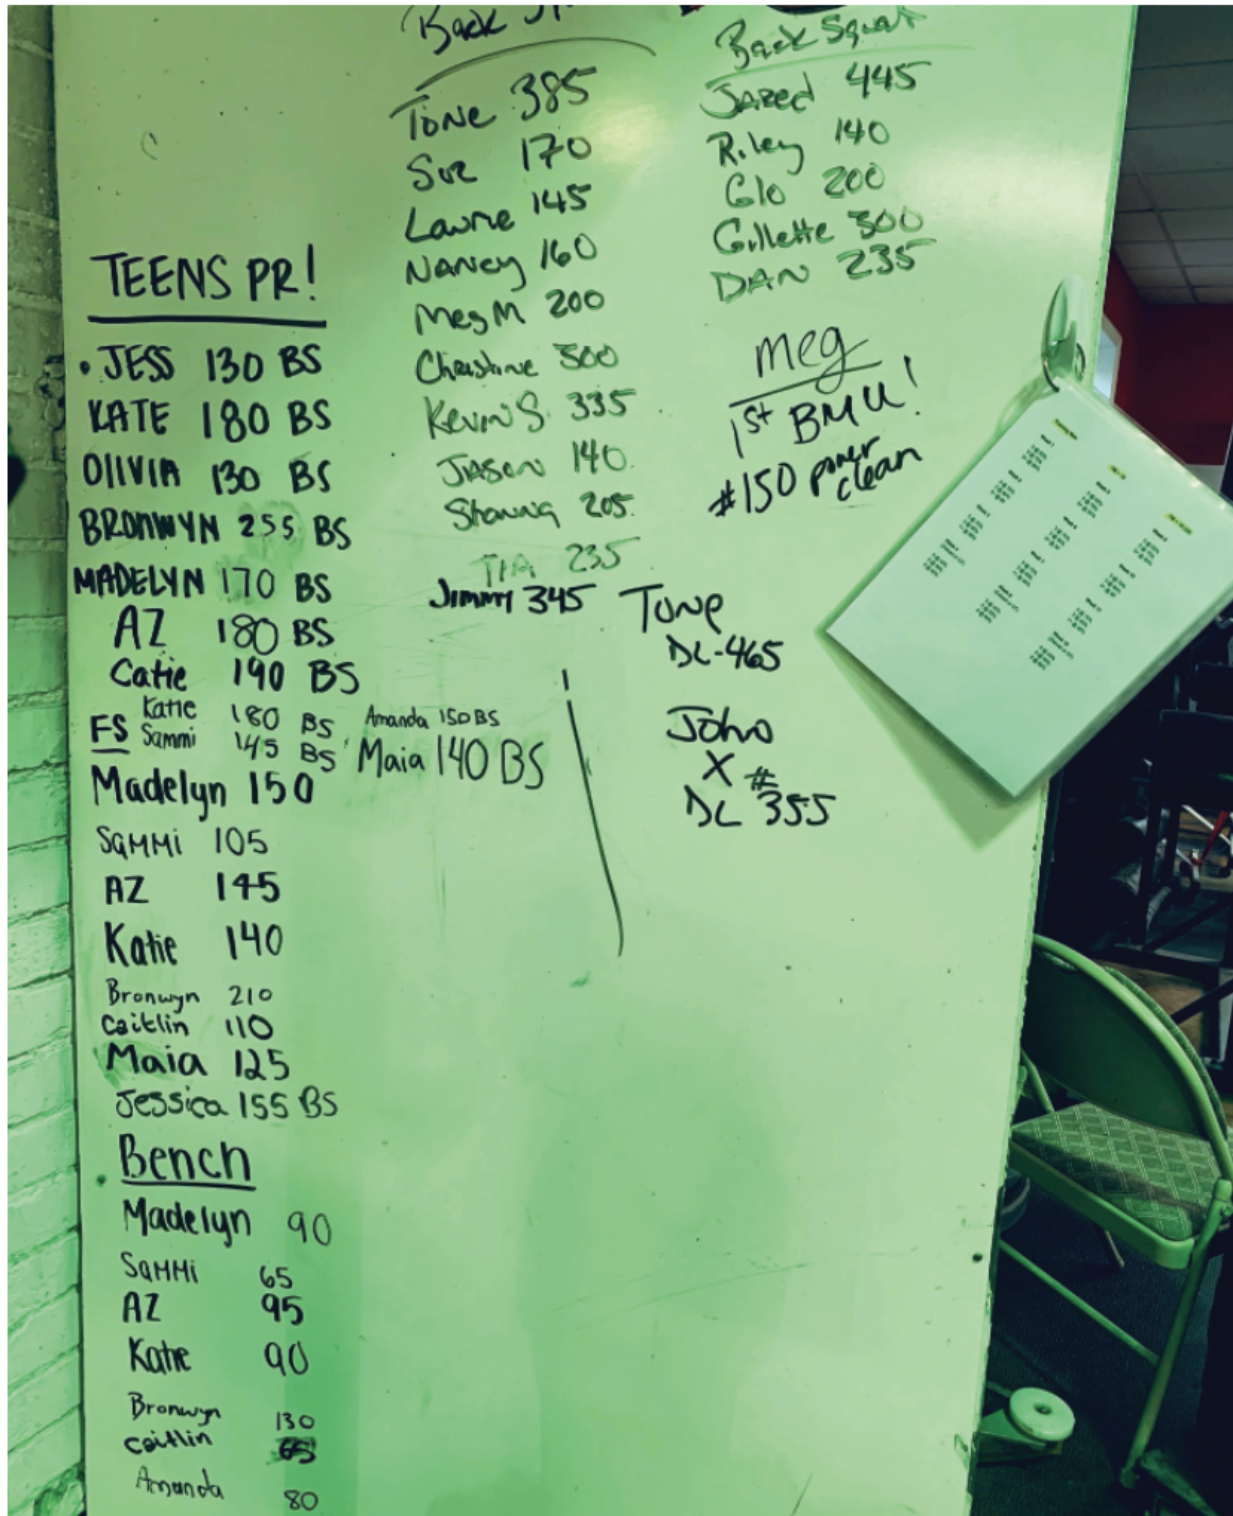 TEENS PR!
• JESS 130 BS
KATE 180 BS
OlIVIA 130 BS
BRONWYN 255 BS
MADELYN 170 BS
AZ 180 BS
Catie 190 BS
FS
Katie 180 BS
Sammi 145 BS
Amanda 150 BS
Maia 140 BS
Madelyn 150
SaMMi 105
AZ 145
Katie 140
Bronwyn 210
Caitlin 110
Maia 125
Jessica 155 BS
Bench
Madelyn 90
SaMMi 65
AZ 95
Katie 90
Bronwyn 130
Caitlin 65
Amanda 80
Back
Tone 385
Sue 170
Laurie 145
Nancy 160
Meg M 200
Christine 300
Kevin S. 335
JASON 140
Shawna 205
TIA 235
Jimmy 345
Back Squat
JARed 445
Riley 140
Glo 200
Gillette 300
DAN 235
Meg
1st BMU!
#150 power clean
Tone
DL-465
John
X #
DL 355